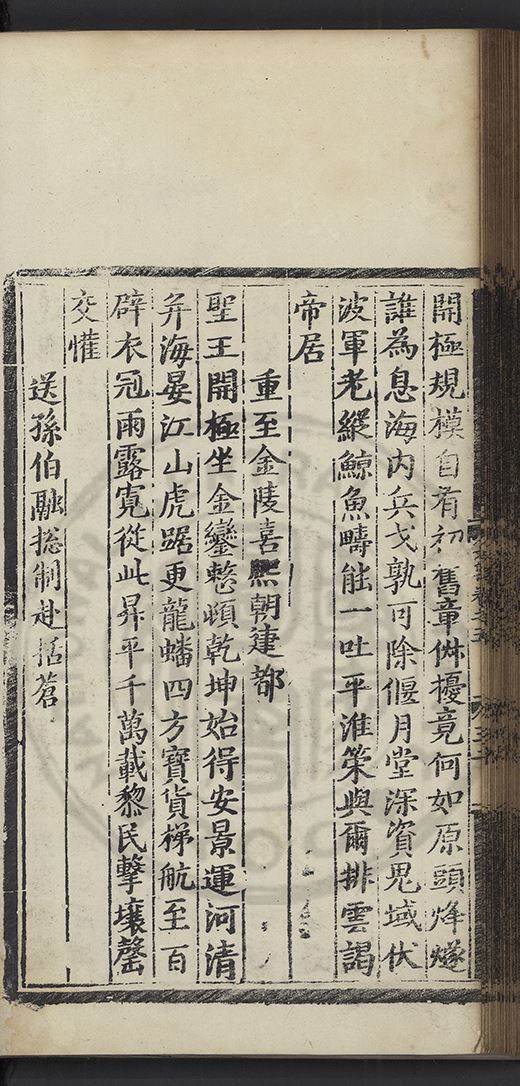 開極規模自有初舊章俶擾竟何如原頭烽燧
誰為息海内兵戈孰可除偃月堂深資鬼域伏
波軍老縱鯨魚疇能一吐平淮策與爾排雲謁
帝居
重至金陵喜熈朝建都
聖王開極坐金鑾整頓乾坤始得安景運河清
并海晏江山虎踞更龍蟠四方寶貨梯航至百
辟衣冠雨露寛從此昇平千萬載黎民擊壤罄
交懽
送孫伯融捴制赴括蒼